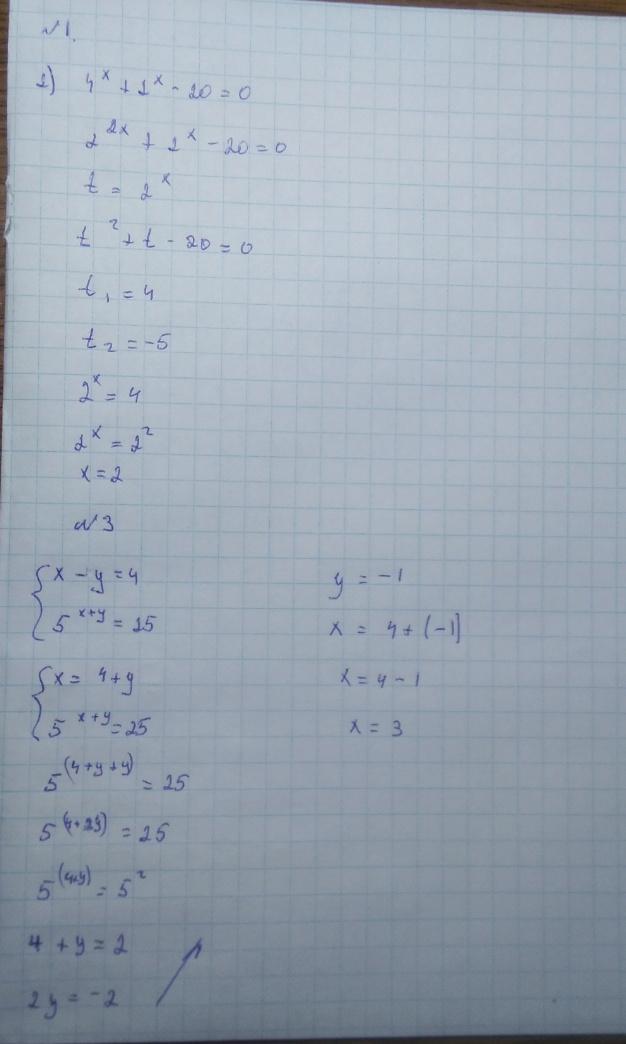 №1.
2) 4^x + 2^x - 20 = 0
2^2x + 2^x - 20 = 0
t = 2^x
t^2 + t - 20 = 0
t₁ = 4
t₂ = -5
2^x = 4
2^x = 2^2
x = 2
№3
{ x - y = 4
5^x+y = 25
{ x = 4+y
5^x+y = 25
5^(4+y+y) = 25
5^(4+2y) = 25
5^(4+y) = 5^2
4 + y = 2
2y = -2
y = -1
x = 4 + (-1)
x = 4 - 1
x = 3